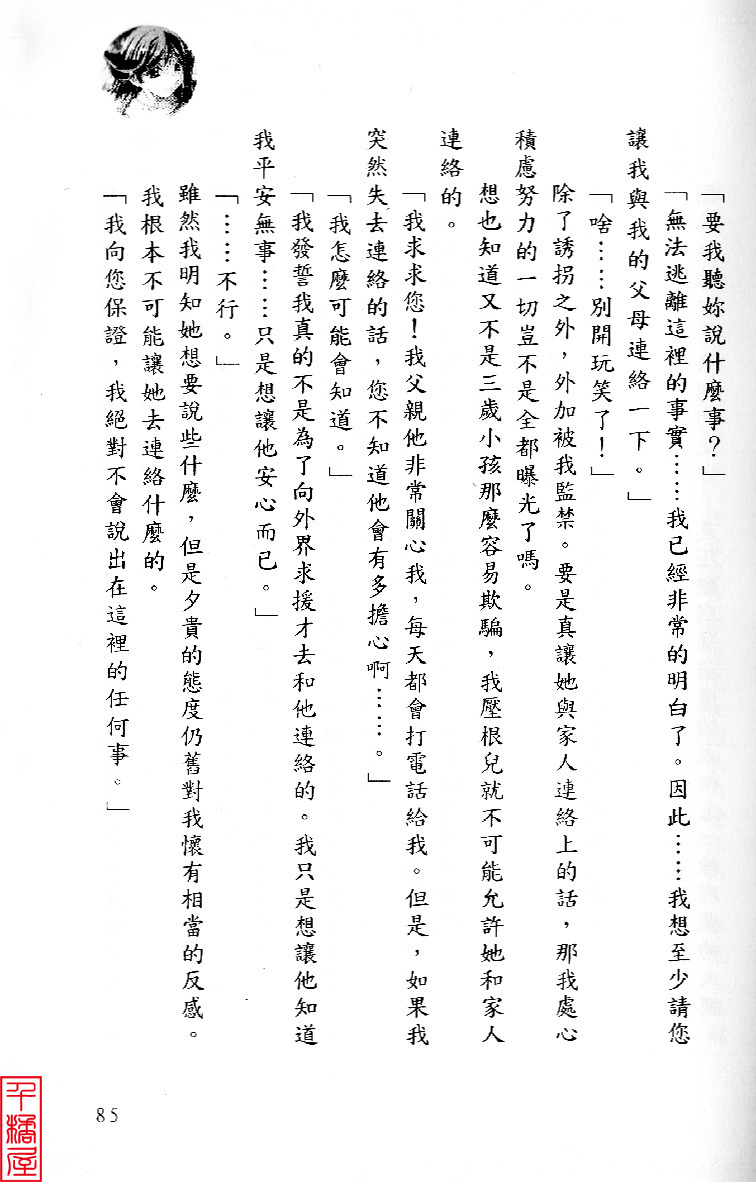 「要我聽妳說什麼事？」
「無法逃離這裡的事實……我已經非常的明白了。因此……我想至少請您
讓我與我的父母連絡一下。」
「啥……別開玩笑了！」
除了誘拐之外，外加被我監禁。要是真讓她與家人連絡上的話，那我處心
積慮努力的一切豈不是全都曝光了嗎。
想也知道又不是三歲小孩那麼容易欺騙，我壓根兒就不可能允許她和家人
連絡的。
「我求求您！我父親他非常關心我，每天都會打電話給我。但是，如果我
突然失去連絡的話，您不知道他會有多擔心啊……。」
「我怎麼可能會知道。」
「我發誓我真的不是為了向外界求援才去和他連絡的。我只是想讓他知道
我平安無事……只是想讓他安心而已。」
「……不行。」
雖然我明知她想要說些什麼，但是夕貴的態度仍舊對我懷有相當的反感。
我根本不可能讓她去連絡什麼的。
「我向您保證，我絕對不會說出在這裡的任何事。」
85